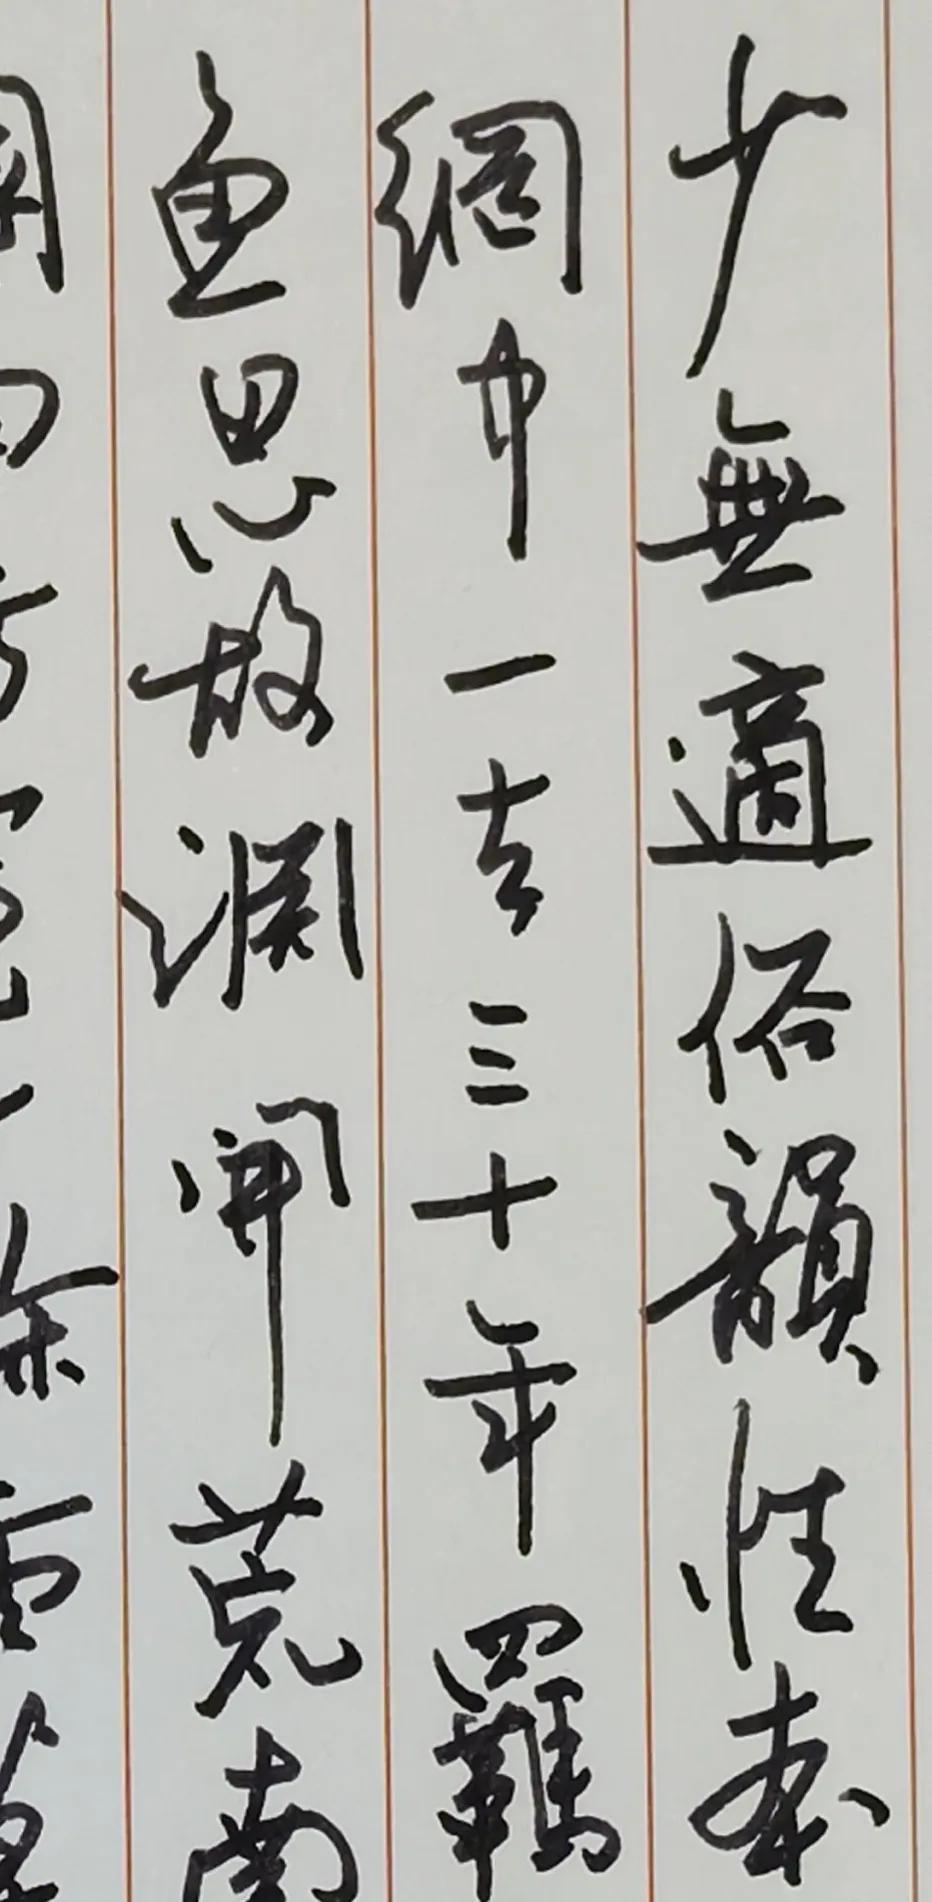 少無適俗韻性本
網中一去三十年羈
鱼思故淵開荒南